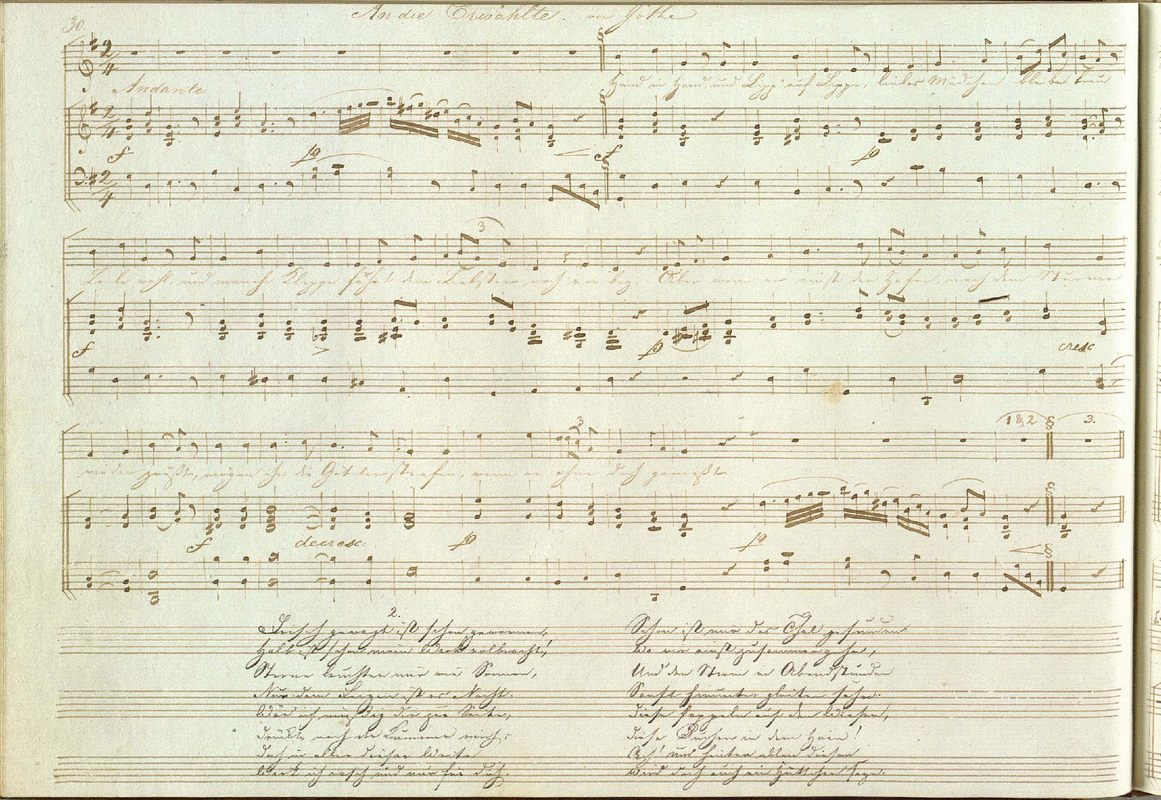 30.
An die Erwählte. von Göthe
Andante
Hand in Hand, und Lipp auf Lippe, liebes Mädchen bleibe treu
Lebe wohl, und manche Klippe fährt dein Liebster noch vorbey. Aber wenn er einst den Hafen, nach dem Sturme
f p cf p
3
f > p cresc
wieder grüßt, mögen ihn die Götter strafen, wenn er ohne dich genießt
3
1 & 2 § 3.
f decresc: p p
2.
Frisch gewagt ist schon gewonnen,
Halb ist schon mein Werk vollbracht;
Sterne leuchten mir wie Sonnen,
Nur dem Feigen ist es Nacht.
Wär ich müßig dir zur Seite,
Drückte noch der Kummer mich;
Doch in aller dieser Weite
Werk ich rasch und nur für dich.
Schon ist mir das Thal gefunden
Wo wir einst zusammen gehn,
Und den Strom in Abendstunden
Sanft hinunter gleiten sehn.
Diese Pappeln auf den Wiesen,
Diese Buchen in dem Hain!
Ach! und hinter allen diesen
Wird doch auch ein Hüttchen seyn.